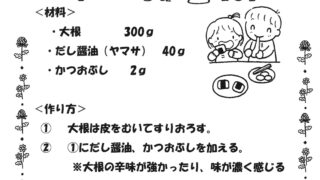 ＜材料＞
・大根　　　300ｇ
・だし醤油（ヤマサ）　40ｇ
・かつおぶし　　2ｇ
＜作り方＞
①　大根は皮をむいてすりおろす。
②　①にだし醤油、かつおぶしを加える。
※大根の辛味が強かったり、味が濃く感じる